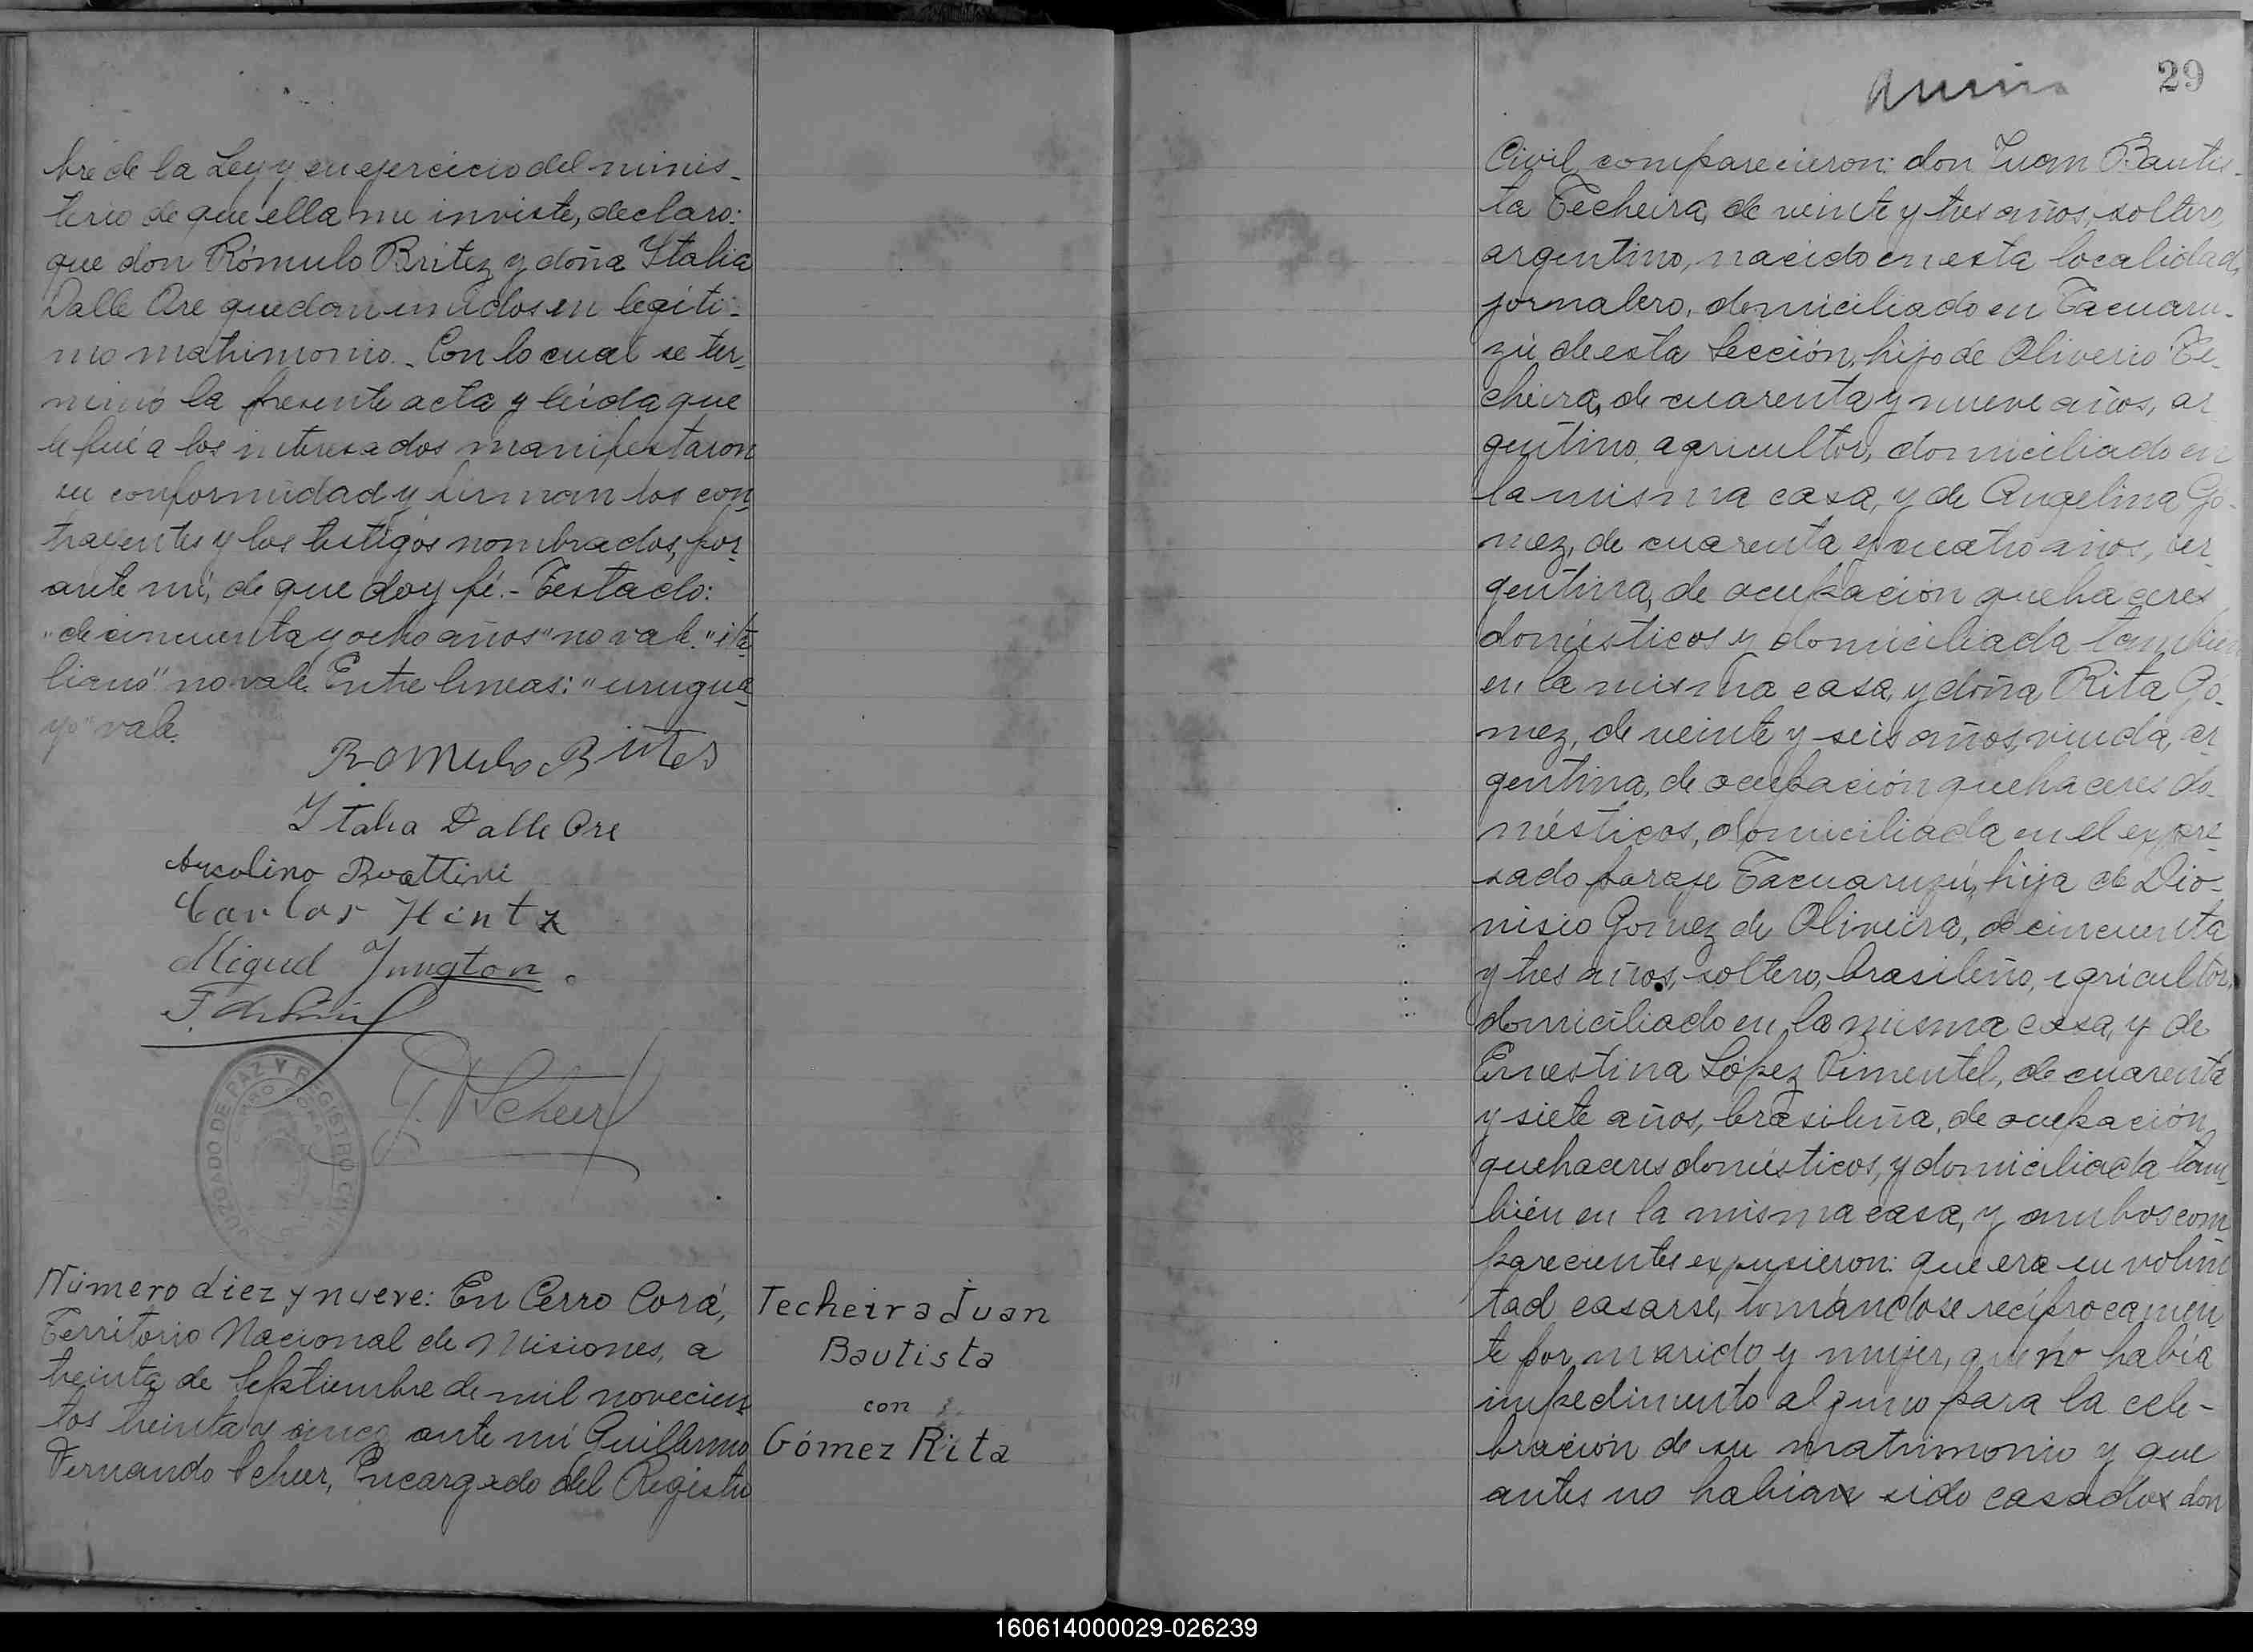 bre de la Ley y en ejercicio del minis-
terio de que ella me inviste, declaro:
que don Rómulo Britez y doña Italia
Dalle Ore quedan unidos en legíti-
mo matrimonio.- Con lo cual se ter-
minó la presente acta y leída que
le fué a los interesados manifestaron
su conformidad y firman los con-
trayentes y los testigos nombrados, por
ante mí, de que doy fé.- Testado:
"de cincuenta y ocho años" no vale. "ita-
liano" no vale. Entre líneas: "urugua-
yo" vale.
Romulo Brites
Italia Dalle Ore
Ansolino Buattini
Carlos Hintz
Miguel
JUZGADO DE PAZ Y REGISTRO CIVIL
CERRO CORA
G. F. Scheer
Número diez y nueve: En Cerro Corá,
Territorio Nacional de Misiones, a
treinta de Septiembre de mil novecien-
tos treinta y cinco ante mí Guillermo
Fernando Scheer, Encargado del Registro
Techeira Juan
Bautista
con
Gómez Rita
29
Civil, comparecieron: don Juan Bautis-
ta Techeira, de veinte y tres años, soltero,
argentino, nacido en esta localidad,
jornalero, domiciliado en Tacuaru-
zú de esta Sección, hijo de Oliverio Te-
cheira, de cuarenta y nueve años, ar-
gentino, agricultor, domiciliado en
la misma casa, y de Angelina Gó-
mez, de cuarenta y cuatro años, ar-
gentina, de ocupación quehaceres
domésticos y domiciliada también
en la misma casa, y doña Rita Gó-
mez, de veinte y seis años, viuda, ar-
gentina, de ocupación quehaceres do-
mésticos, domiciliada en el expre-
sado paraje Tacuaruzú, hija de Dio-
nisio Gomez de Oliveira, de cincuenta
y tres años, soltero, brasileño, agricultor,
domiciliado en la misma casa, y de
Ernestina López Pimentel, de cuarenta
y siete años, brasileña, de ocupación
quehaceres domésticos, y domiciliada tam-
bién en la misma casa, y ambos com-
parecientes expusieron: que era su volun-
tad casarse, tomándose recíprocamen-
te por marido y mujer, que no había
impedimento alguno para la cele-
bración de su matrimonio y que
antes no habian sido casados don
160614000029-026239